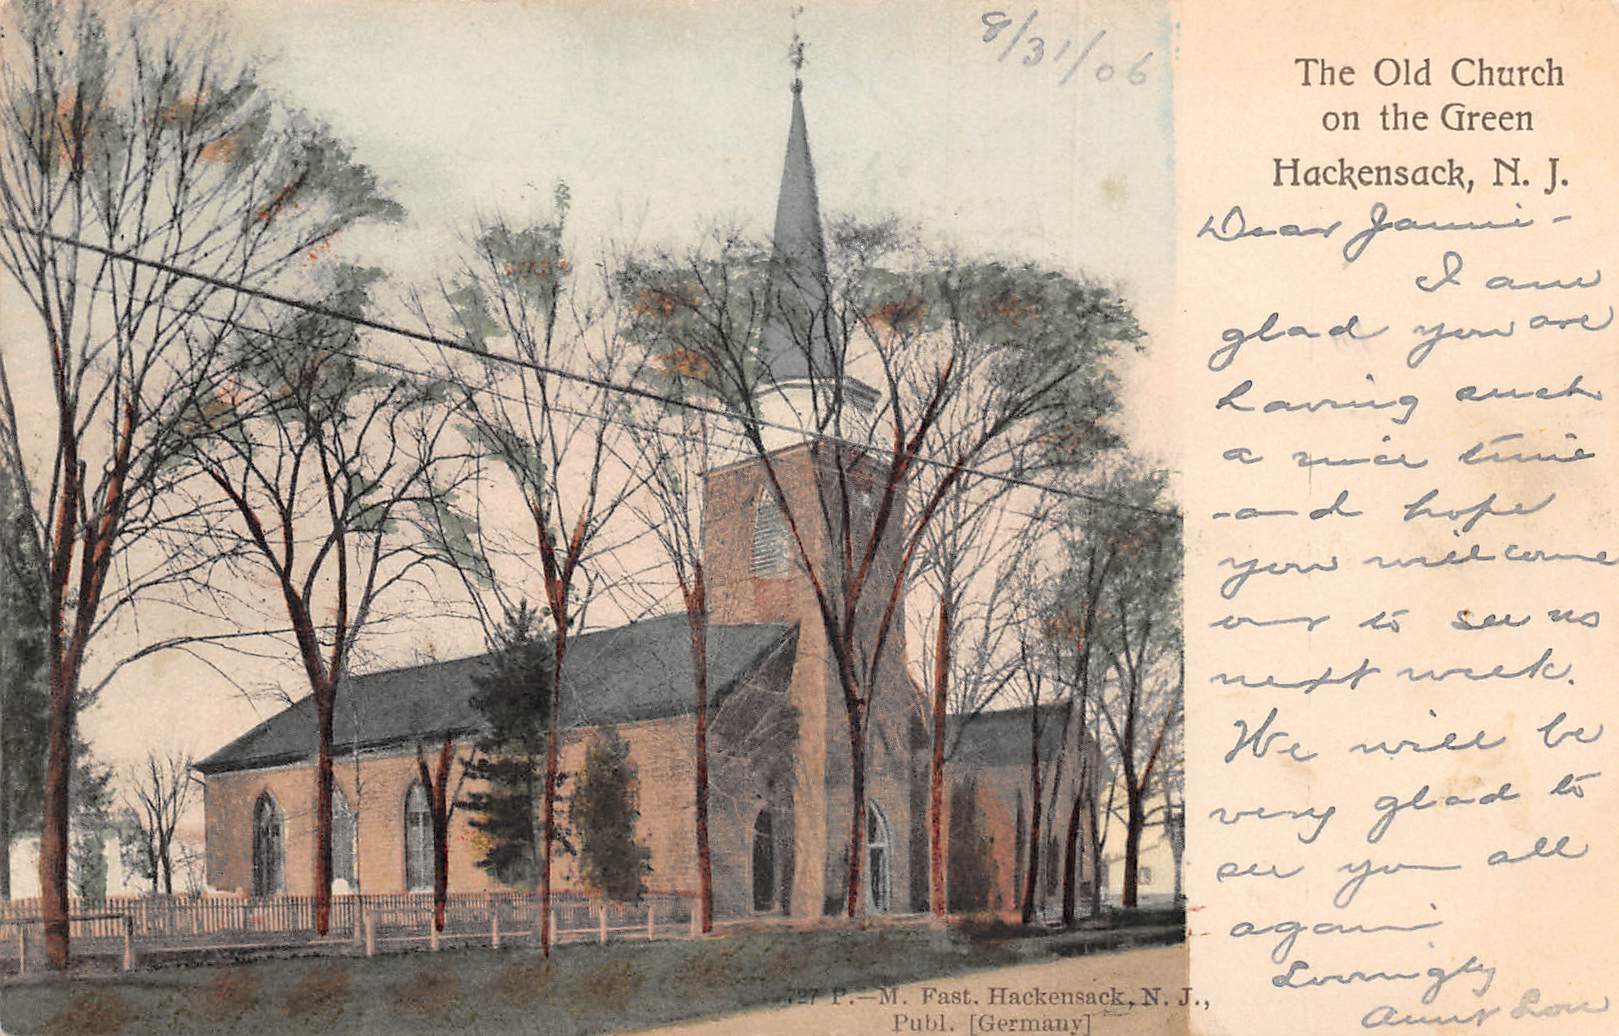 8/31/06
The Old Church
on the Green
Hackensack, N. J.
Dear Jannie -
I am
glad you are
having such
a nice time
and hope
you will come
out to see us
next week.
We will be
very glad to
see you all
again
Lovingly
Aunt Lou
727 P.—M. Fast. Hackensack, N. J.,
Publ. [Germany]